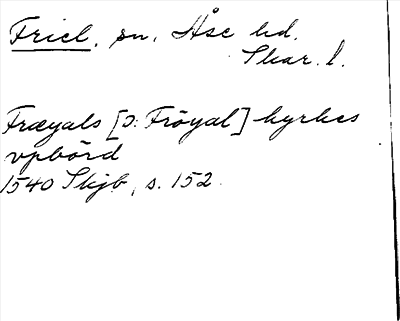 Friel, sn, Åse hd.
Skar. l.
Fræyals [ɔ: Fröyal] kyrkes
vpbörd
1540 Skjb, s. 152.